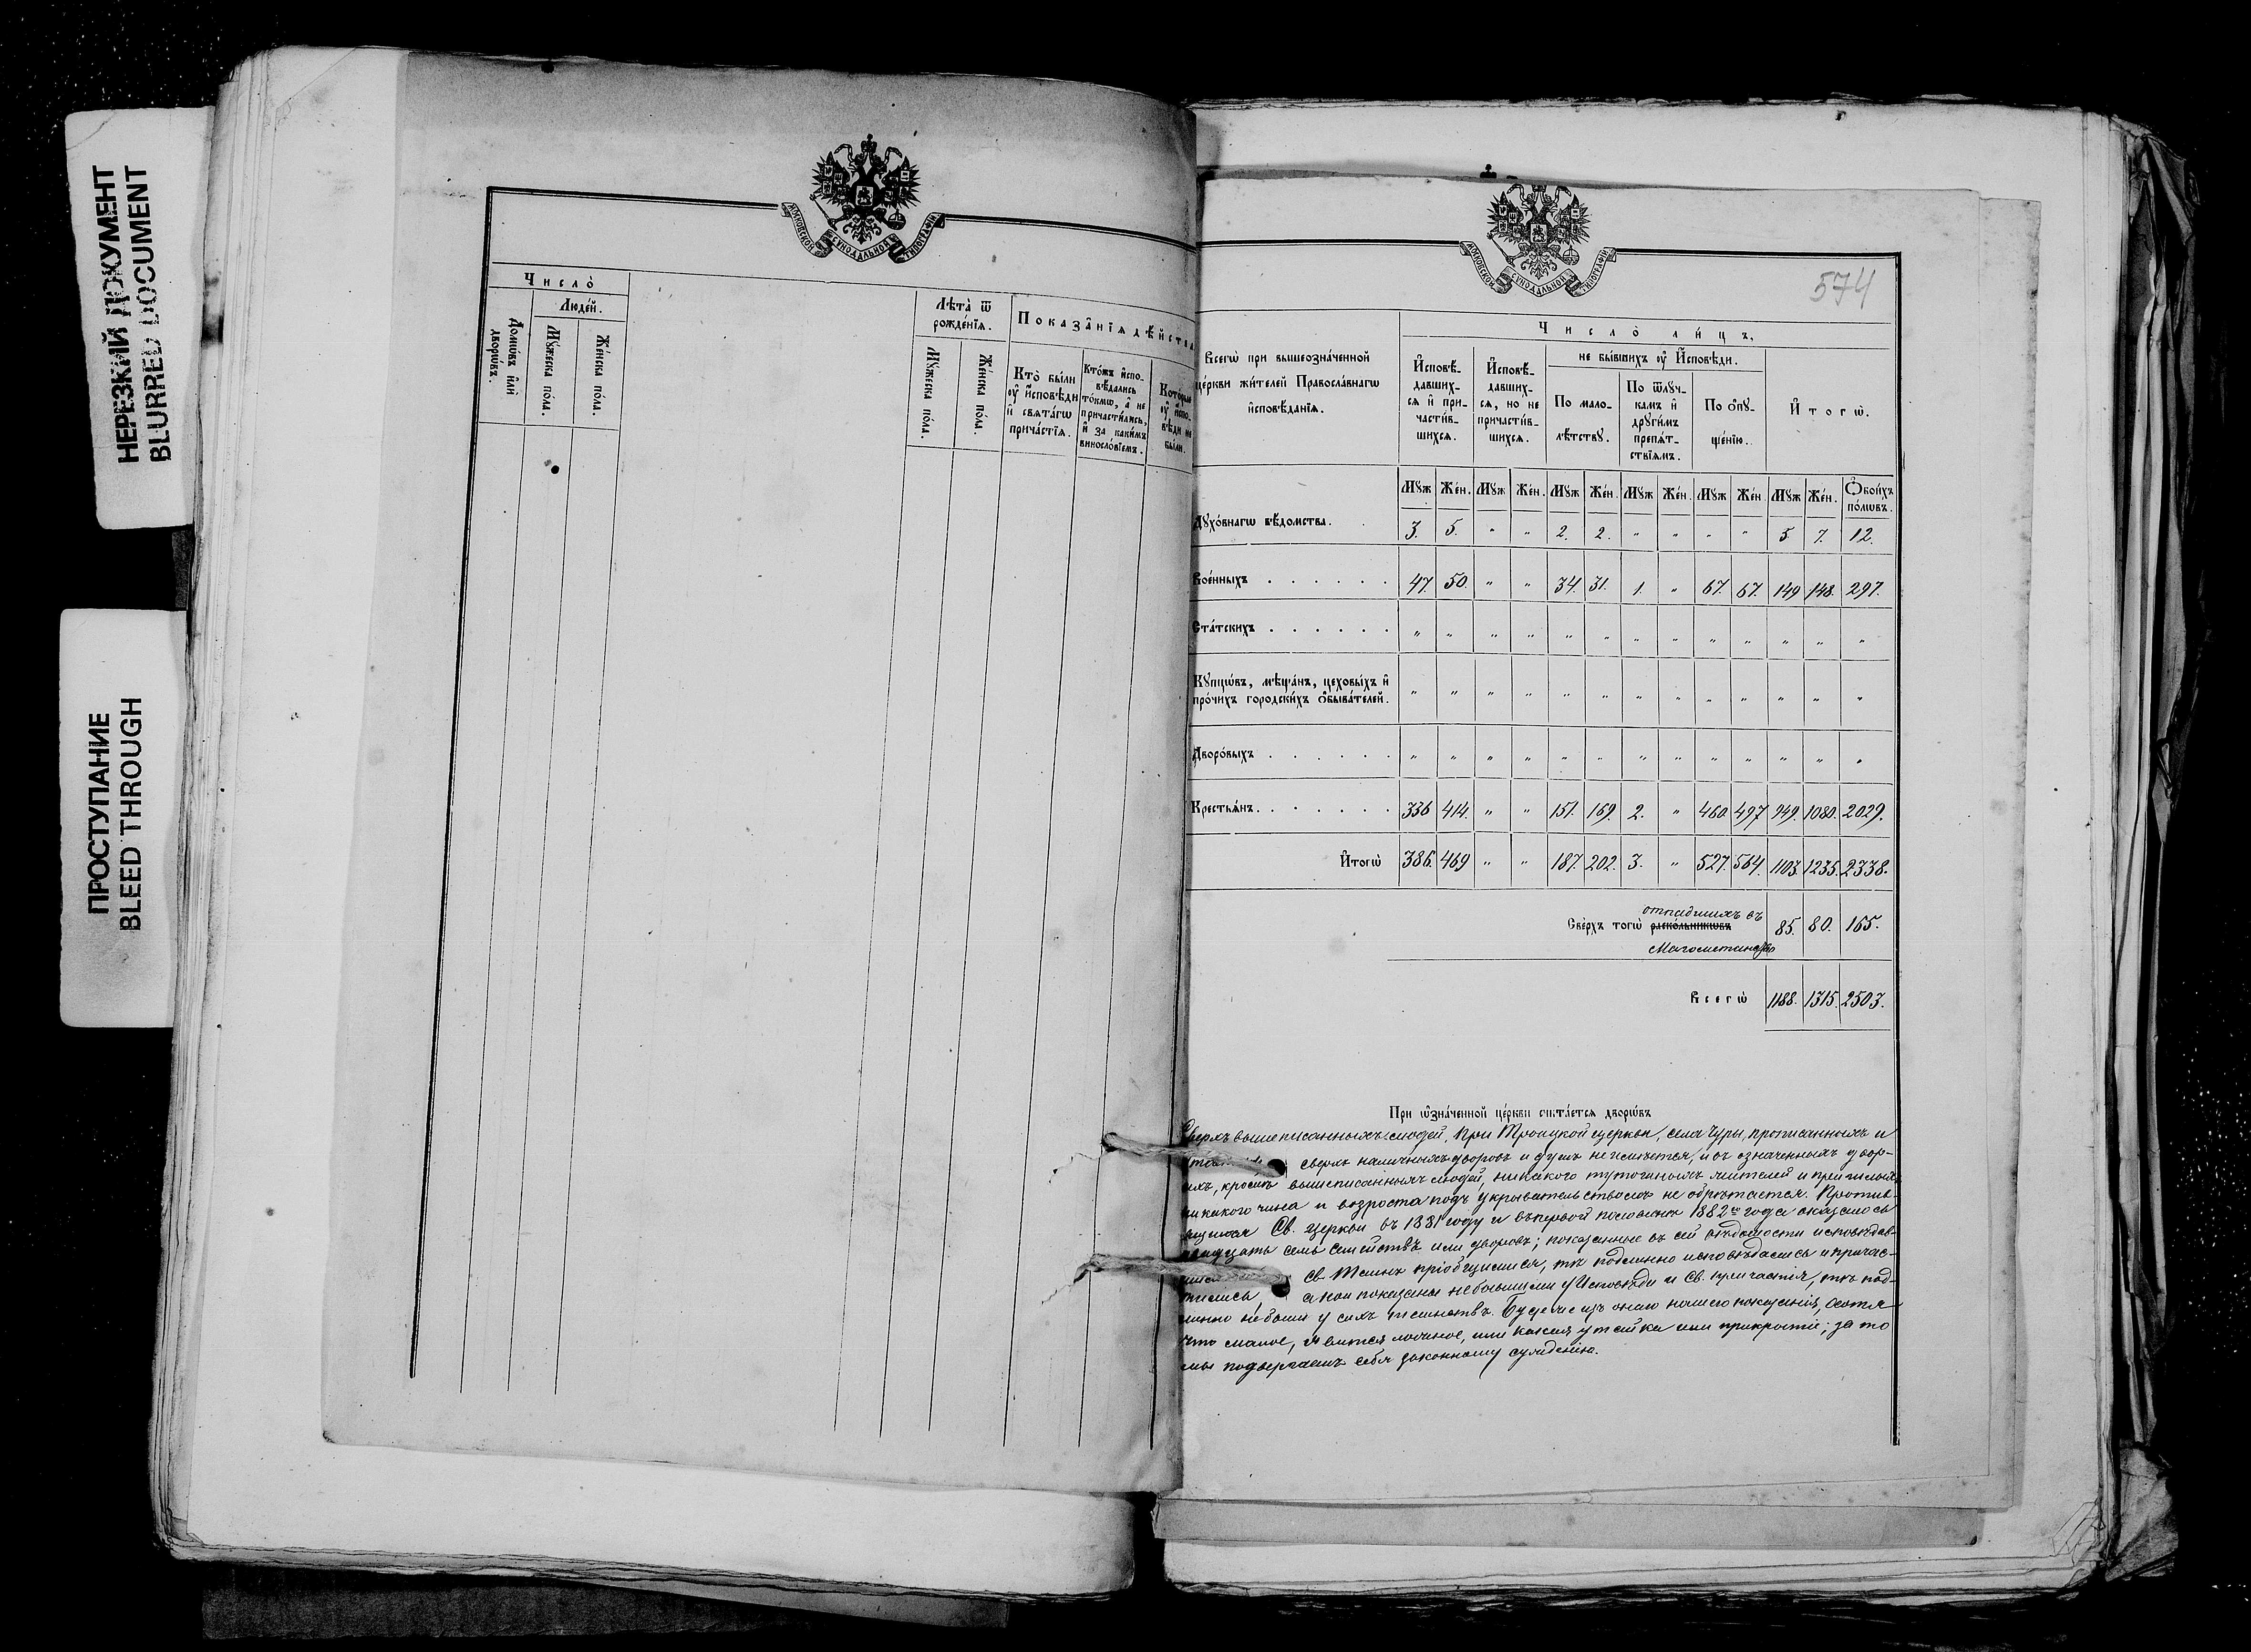 НЕРЕЗКИЙ ДОКУМЕНТ
BLURRED DOCUMENT
ПРОСТУПАНИЕ
BLEED THROUGH
МОСКОВСКОЙ СѴНОДАЛЬНОЙ ТИПОГРАФІИ
Число̀
Домѡ́въ и҆лѝ дворѡ́въ.
Люде́й.
Мꙋ́жеска по́ла.
Же́нска по́ла.
Лѣ́та ѿ рожде́нїѧ.
Мꙋ́жеска по́ла.
Же́нска по́ла.
Показа̑нїѧ дѣ́йства
Кто̀ бы́ли ᲂу҆ И҆сповѣди и҆ свѧта́гѡ прича́стїѧ.
Кто́жъ и҆сповѣ́дались то́кмѡ, а҆ не причасти́лись, и҆ за каки́мъ винослові́емъ.
Кото́рые ᲂу҆ и҆сповѣди не бы́ли.
МОСКОВСКОЙ СѴНОДАЛЬНОЙ ТИПОГРАФІИ
574
Всегѡ̀ при вышеозна́ченной
це́ркви жи́телей Правосла́внагѡ
и҆сповѣ́данїѧ.
Число̀ ли́цъ.
И҆сповѣ́давшихсѧ и҆ причасти́вшихсѧ.
И҆сповѣ́давшихсѧ, но не причасти́вшихсѧ.
не бы́вшихъ ᲂу҆ И҆сповѣди.
По малолѣ́тствꙋ.
По ѿлꙋ́чкамъ и҆ други́мъ препѧ́тствїѧмъ.
По ѻ҆пꙋще́нїю.
И҆того̀.
Мꙋж Же́н. Мꙋж Же́н. Мꙋж Же́н. Мꙋж Же́н. Мꙋж Же́н. Мꙋж Же́н. Ѻ҆бои́хъ по́лѡвъ.
Дꙋхо́внагѡ вѣ́домства. 3. 5. " " 2. 2. " " " " 5 7. 12.
Вое́нныхъ . . . . . . 47. 50. " " 34. 31. 1. " 67. 67. 149 148. 297.
Ста́тскихъ . . . . . . " " " " " " " " " " " " "
Кꙋпцѡ́въ, мѣща́нъ, цеховы́хъ и҆
про́чихъ городски́хъ ѻ҆быва́телей. " " " " " " " " " " " " "
Дворо́выхъ . . . . . . " " " " " " " " " " " " "
Крестьѧ́нъ. . . . . . . 336 414. " " 151. 169. 2. " 460. 497 949. 1080. 2029.
И҆того̀ 386. 469 " " 187. 202. 3. " 527. 564. 1103. 1235. 2338.
отпадшихъ въ
Све́рхъ тогѡ̀ раско́льникѡвъ 85. 80. 165.
Магометанство
Всегѡ̀ 1188. 1315. 2503.
При ѡ҆зна́ченной це́ркви счита́етсѧ дворѡ́въ
Сверхъ вышеписанныхъ людей, при Троицкой церкви, села Чуры, прописанныхъ и
сверхъ наличныхъ дворовъ и душъ неимѣется, и въ означенныхъ двор-
ахъ, кромѣ вышеписанныхъ людей, никакого тутошныхъ жителей и пришлыхъ
никакого чина и возроста подъ укрывательствомъ не обрѣтается. Против-
ящихся Св. Церкви въ 1881 году и въ первой половинѣ 1882го года оказалось
семь семействъ или дворовъ; показанные въ сей вѣдомости исповѣдав-
Св. Таинъ пріобщишися, тѣ подлинно исповѣдались и причас-
тились, а кои показаны небывшими у Исповѣди и Св. причастія, тѣ под-
линно небыли у сихъ таинствъ. Буде же изъ онаго нашего показанія, хотя
что малое, явится ложное, или какая утайка или прикрытіе; за то
мы подвергаемъ себя законному сужденію.